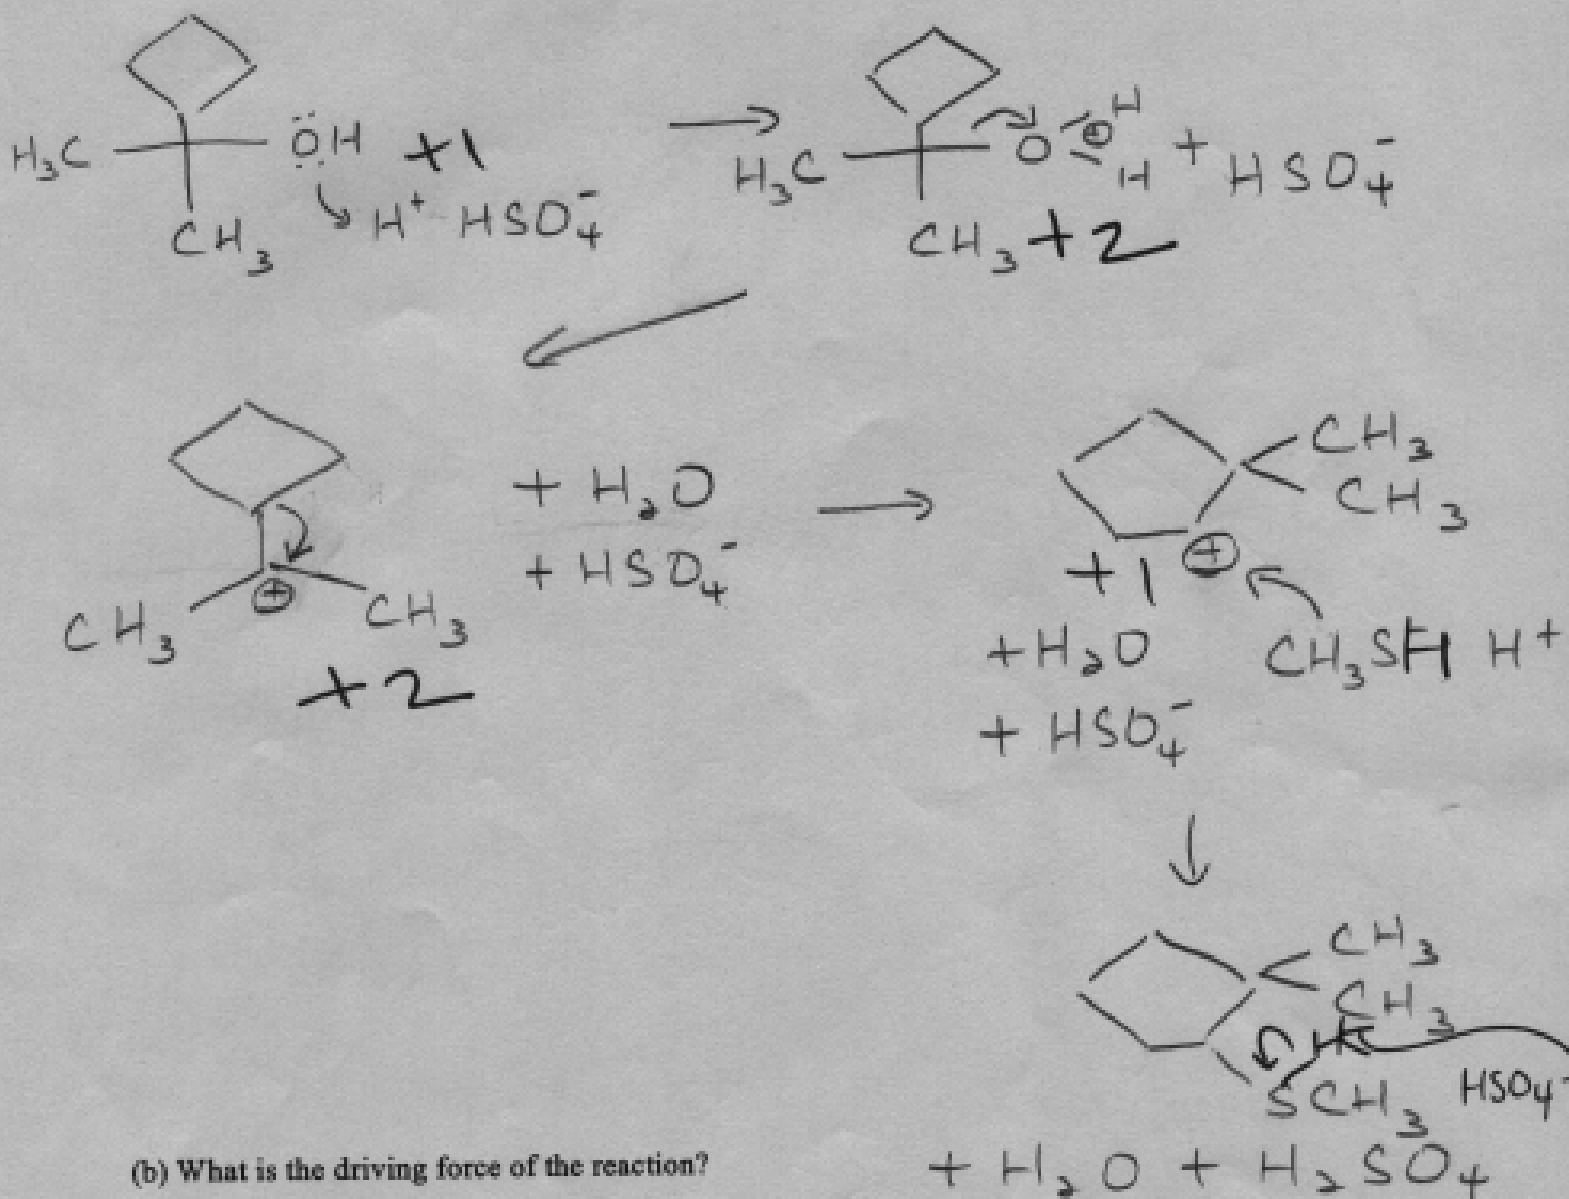 H₃C ÖH +1
CH₃ H⁺ HSO₄⁻
H₃C O ⊕ H H + HSO₄⁻
CH₃ +2
CH₃ ⊕ CH₃
+2
+ H₂O
+ HSO₄⁻
CH₃
CH₃
+1 ⊕
+H₂O CH₃SH H⁺
+ HSO₄⁻
CH₃
CH₃
H
SCH₃ HSO₄⁻
+ H₂O + H₂SO₄
(b) What is the driving force of the reaction?